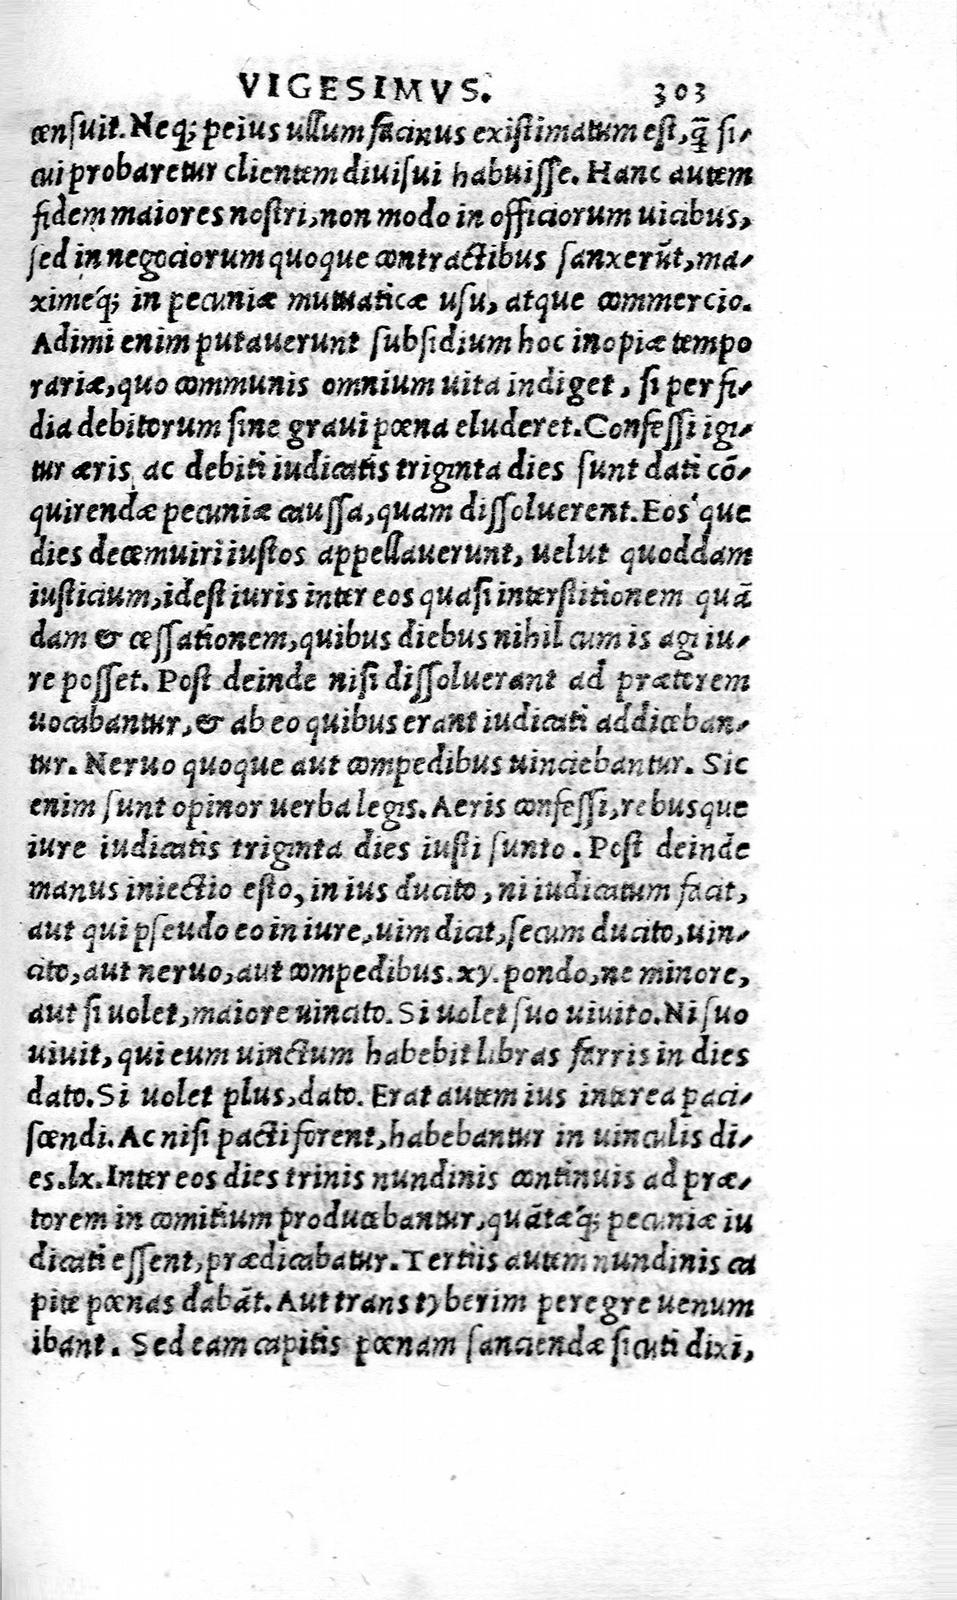 VIGESIMVS. 303
cenſuit. Neq; peius ullum facinus exiſtimatum eſt, q̃ ſi-
cui probaretur clientem diuiſui habuiſſe. Hanc autem
fidem maiores noſtri, non modo in officiorum uicibus,
ſed in negociorum quoque contractibus ſanxerũt, ma-
ximeq́; in pecuniæ mutuaticæ uſu, atque commercio.
Adimi enim putauerunt ſubſidium hoc inopiæ tempo
rariæ, quo communis omnium uita indiget, ſi perfi-
dia debitorum ſine graui pœna eluderet. Confeſſi igi-
tur æris ac debiti iudicatis triginta dies ſunt dati cõ-
quirendæ pecuniæ cauſſa, quam diſſoluerent. Eos'que
dies decemuiri iuſtos appellauerunt, uelut quoddam
iuſticium, ideſt iuris inter eos quaſi interſtitionem quã
dam & ceſſationem, quibus diebus nihil cum is agi iu-
re poſſet. Poſt deinde niſi diſſoluerant ad prætorem
uocabantur, & ab eo quibus erant iudicati addiceban-
tur. Neruo quoque aut compedibus uinciebantur. Sic
enim ſunt opinor uerba legis. Aeris confeſſi, rebusque
iure iudicatis triginta dies iuſti ſunto. Poſt deinde
manus iniectio eſto, in ius ducito, ni iudicatum facit,
aut qui pſeudo eo in iure, uim dicit, ſecum ducito, uin-
cito, aut neruo, aut compedibus. xy. pondo, ne minore,
aut ſi uolet, maiore uincito. Si uolet ſuo uiuito. Ni ſuo
uiuit, qui eum uinctum habebit libras farris in dies
dato. Si uolet plus, dato. Erat autem ius interea paci-
ſcendi. Ac niſi pacti forent, habebantur in uinculis di-
es. lx. Inter eos dies trinis nundinis continuis ad præ-
torem in comitium producebantur, quãtæq́; pecuniæ iu
dicati eſſent, prædicabatur. Tertiis autem nundinis ca
pite pœnas dabãt. Aut trans tyberim peregre uenum
ibant. Sed eam capitis pœnam ſanciendæ ſicuti dixi,